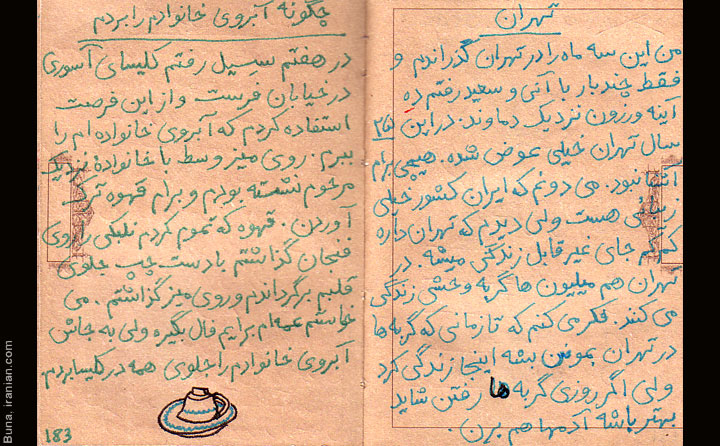 تهران
من این سه ماه را در تهران گذراندم و
فقط چند بار با آنی و سعید رفتم ده
آینه ورزون نزدیک دماوند. در این ۲۵
سال تهران خیلی عوض شده. هیچی برام
آشنا نبود. می دونم که ایران کشور خیلی
زیبائی هست ولی دیدم که تهران داره
کم کم جای غیر قابل زندگی میشه. در
تهران هم میلیون ها گربه وحشی زندگی
می کنند. فکر می کنم که تا زمانی که گربه ها
در تهران بمونن بشه اینجا زندگی کرد
ولی اگر روزی گربه ها رفتن شاید
بهتر باشه آدمها هم برن.
چگونه آبروی خانوادم را بردم
در هفتم سیسیل رفتم کلیسای آسوری
در خیابان فرست و از این فرصت
استفاده کردم که آبروی خانواده ام را
ببرم. روی میز وسط با خانوادهٔ نزدیک
مرحوم نشسته بودم و برام قهوه ترک
آوردن. قهوه که تموم کردم نلبکی را روی
فنجان گذاشتم با دست چپ جلوی
قلبم برگرداندم و روی میز گذاشتم. می
خواستم عمه ام برایم فال بگیره ولی به جاش
آبروی خانوادم را جلوی همه در کلیسا بردم
183
Buna, iranian.com